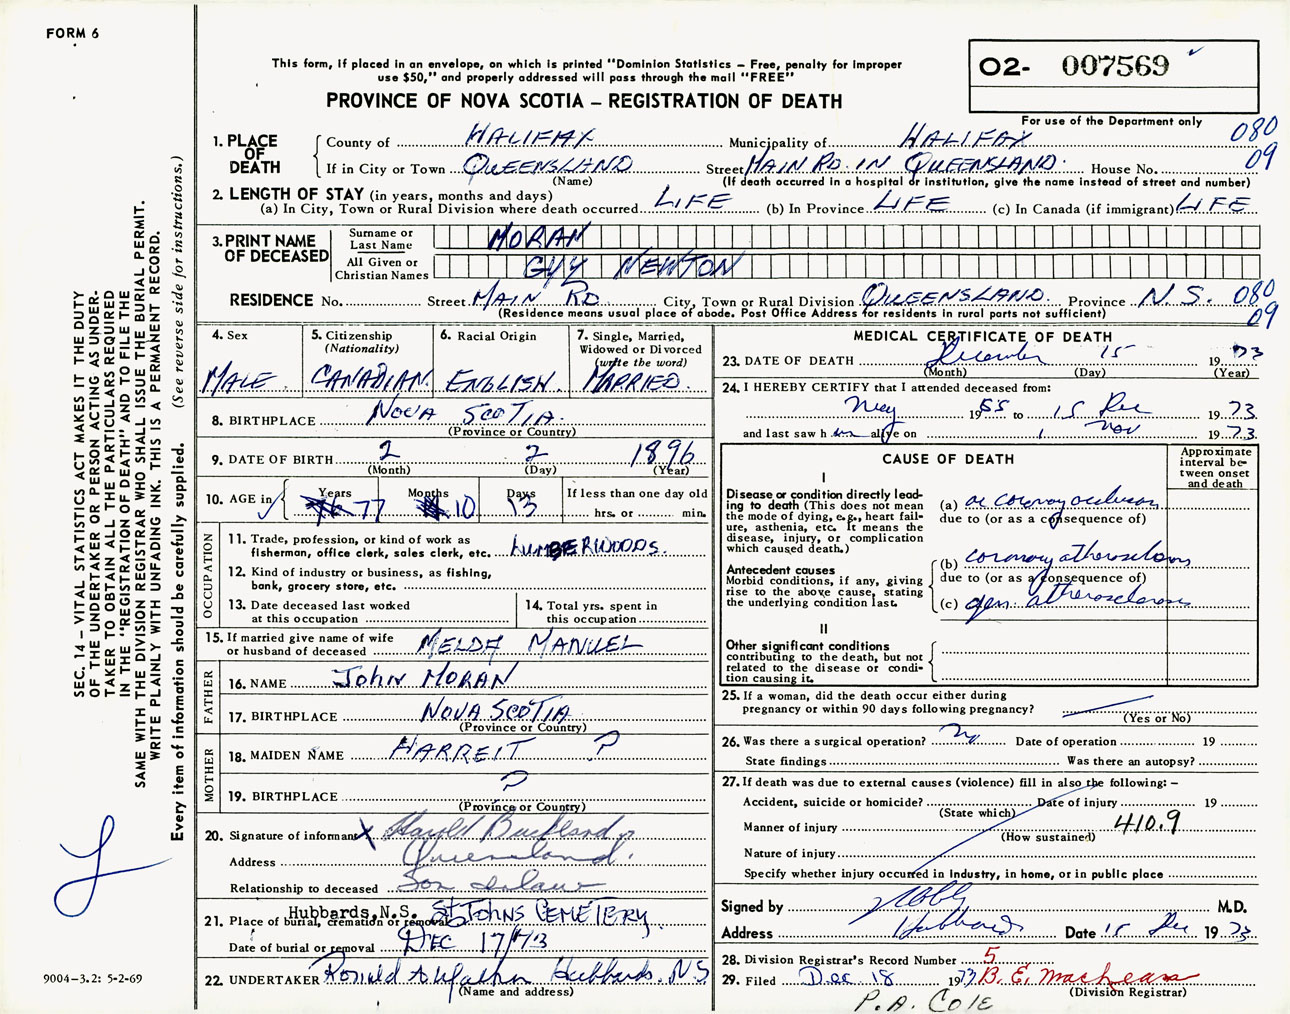 FORM 6
This form, if placed in an envelope, on which is printed "Dominion Statistics – Free, penalty for improper
use $50," and properly addressed will pass through the mail "FREE"
PROVINCE OF NOVA SCOTIA – REGISTRATION OF DEATH
02- 007569
For use of the Department only
080
09
1. PLACE OF DEATH
County of HALIFAX Municipality of HALIFAX
If in City or Town QUEENSLAND Street MAIN RD. IN QUEENSLAND. House No.
(Name) (If death occurred in a hospital or institution, give the name instead of street and number)
2. LENGTH OF STAY (in years, months and days)
(a) In City, Town or Rural Division where death occurred LIFE (b) In Province LIFE (c) In Canada (if immigrant) LIFE
3. PRINT NAME OF DECEASED
Surname or Last Name MORAN
All Given or Christian Names GUY NEWTON
RESIDENCE No. Street MAIN RD City, Town or Rural Division QUEENSLAND. Province N.S. 080
(Residence means usual place of abode. Post Office Address for residents in rural parts not sufficient) 09
4. Sex
MALE
5. Citizenship
(Nationality)
CANADIAN.
6. Racial Origin
ENGLISH
7. Single, Married,
Widowed or Divorced
(write the word)
MARRIED.
8. BIRTHPLACE NOVA SCOTIA.
(Province or Country)
9. DATE OF BIRTH 2 2 1896
(Month) (Day) (Year)
10. AGE in Years Months Days If less than one day old
77 10 13 hrs. or min.
OCCUPATION
11. Trade, profession, or kind of work as
fisherman, office clerk, sales clerk, etc. LUMBERWOODS.
12. Kind of industry or business, as fishing,
bank, grocery store, etc.
13. Date deceased last worked
at this occupation
14. Total yrs. spent in
this occupation
15. If married give name of wife
or husband of deceased MELDA MANUEL
FATHER
16. NAME JOHN MORAN
17. BIRTHPLACE NOVA SCOTIA
(Province or Country)
MOTHER
18. MAIDEN NAME HARREIT ?
19. BIRTHPLACE ?
(Province or Country)
20. Signature of informant X Harold
Address Queensland.
Relationship to deceased Son inlaw
Hubbards, N.S. St Johns CEMETERY
21. Place of burial, cremation or removal
Date of burial or removal DEC 17/73
22. UNDERTAKER Ronald Hubbards. N.S
(Name and address)
MEDICAL CERTIFICATE OF DEATH
23. DATE OF DEATH December 15 1973
(Month) (Day) (Year)
24. I HEREBY CERTIFY that I attended deceased from:
May 1955 to 15 Dec 1973
and last saw h im alive on 1 Nov 1973
CAUSE OF DEATH
Approximate
interval be-
tween onset
and death
I
Disease or condition directly lead-
ing to death (This does not mean
the mode of dying, e.g., heart fail-
ure, asthenia, etc. It means the
disease, injury, or complication
which caused death.)
(a) ac coronary occlusion
due to (or as a consequence of)
Antecedent causes
Morbid conditions, if any, giving
rise to the above cause, stating
the underlying condition last.
(b) coronary atherosclerosis
due to (or as a consequence of)
(c) gen. atherosclerosis
II
Other significant conditions
contributing to the death, but not
related to the disease or condi-
tion causing it.
25. If a woman, did the death occur either during
pregnancy or within 90 days following pregnancy?
(Yes or No)
26. Was there a surgical operation? No Date of operation 19
State findings Was there an autopsy?
27. If death was due to external causes (violence) fill in also the following: –
Accident, suicide or homicide? Date of injury 19
(State which)
Manner of injury 410.9
(How sustained)
Nature of injury
Specify whether injury occurred in industry, in home, or in public place
Signed by M.D.
Address Hubbards Date 15 Dec 1973
28. Division Registrar's Record Number 5
29. Filed Dec 18 1973 B. E. MacLean
(Division Registrar)
P.A. Cole
SEC. 14 – VITAL STATISTICS ACT MAKES IT THE DUTY
OF THE UNDERTAKER OR PERSON ACTING AS UNDER-
TAKER TO OBTAIN ALL THE PARTICULARS REQUIRED
IN THE "REGISTRATION OF DEATH" AND TO FILE THE
SAME WITH THE DIVISION REGISTRAR WHO SHALL ISSUE THE BURIAL PERMIT.
WRITE PLAINLY WITH UNFADING INK. THIS IS A PERMANENT RECORD.
Every item of information should be carefully supplied. (See reverse side for instructions.)
9004-3.2: 5-2-69